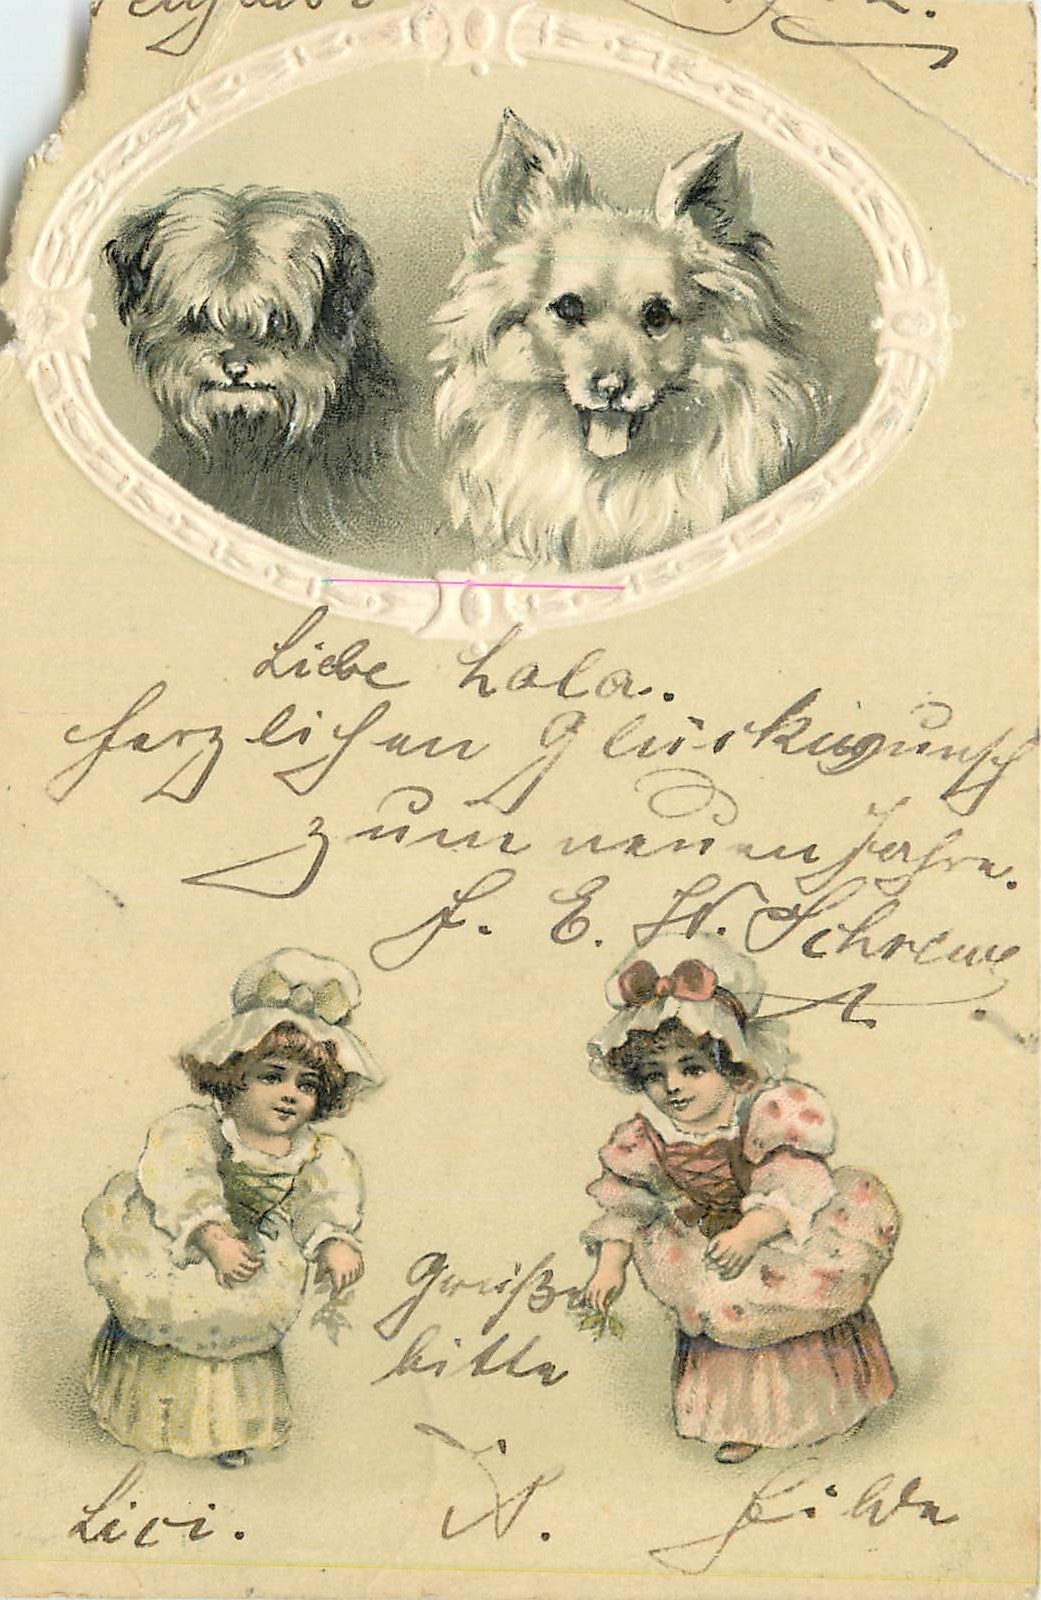 Liebe Lola.
herzlichen Glückwunsch
zum neuen Jahre.
F. E. W. Schrewe
Grüße
bitte
Lici. Hilde